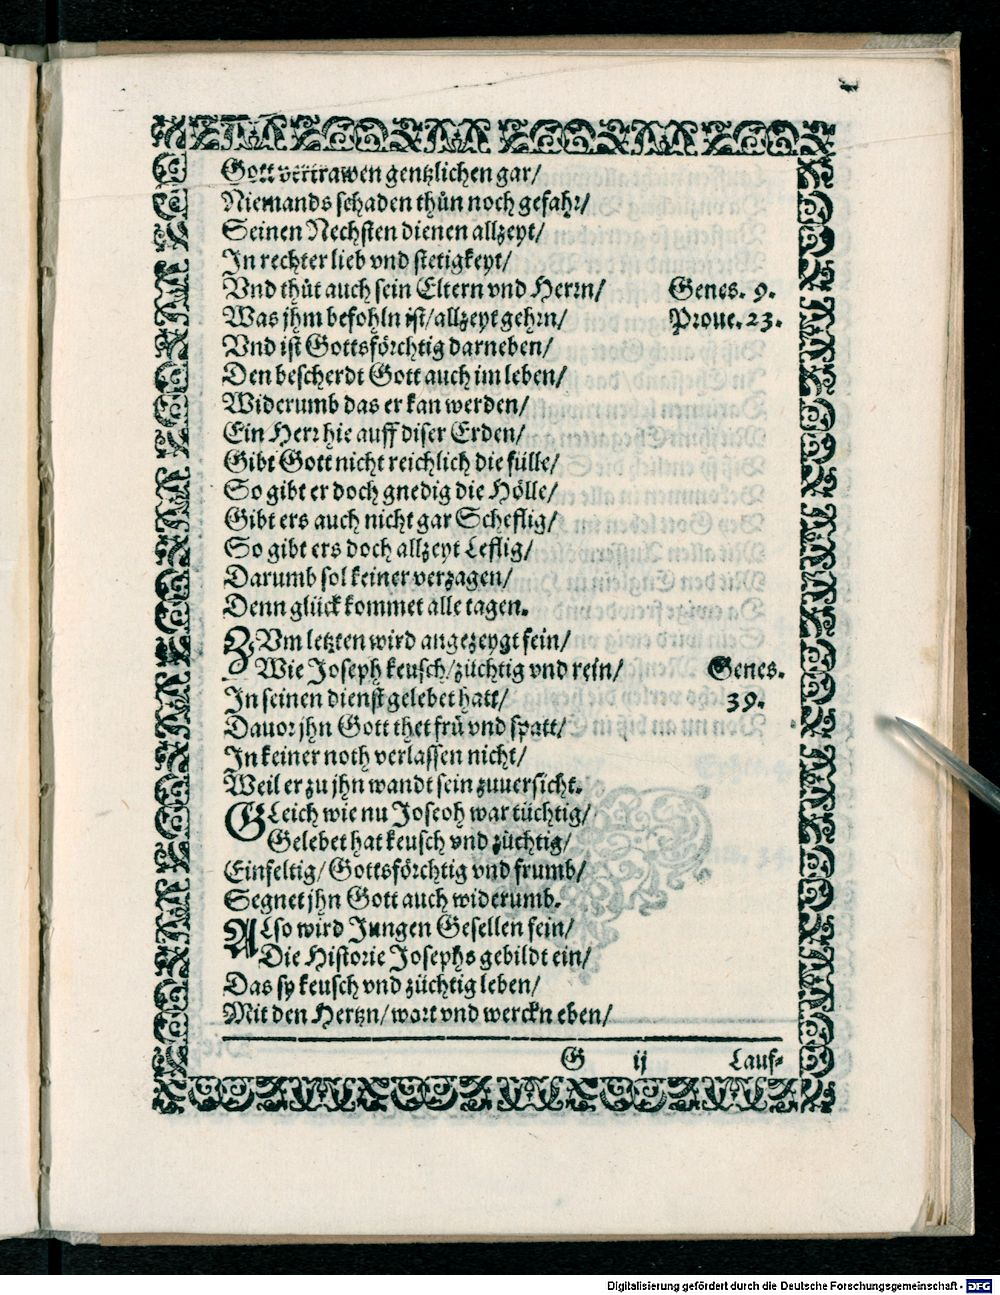 Gott vertrawen gentzlichen gar/
Niemands schaden thůn noch gefahr/
Seinen Nechsten dienen allzeyt/
In rechter lieb vnd stetigkeyt/
Vnd thůt auch sein Eltern vnd Herrn/ Genes. 9.
Was jhm befohln ist/allzeyt gehrn/ Proue. 23.
Vnd ist Gottsförchtig darneben/
Den bescherdt Gott auch im leben/
Widerumb das er kan werden/
Ein Herr hie auff diser Erden/
Gibt Gott nicht reichlich die fülle/
So gibt er doch gnedig die Hölle/
Gibt ers auch nicht gar Scheflig/
So gibt ers doch allzeyt Leflig/
Darumb sol keiner verzagen/
Denn glück kommet alle tagen.
ZVm letzten wird angezeygt fein/
Wie Joseph keusch/züchtig vnd rein/ Genes.
In seinen dienst gelebet hatt/ 39.
Dauor jhn Gott thet frü vnd spatt/
In keiner noth verlassen nicht/
Weil er zu jhn wandt sein zuuersicht.
GLeich wie nu Joseph war tüchtig/
Gelebet hat keusch vnd züchtig/
Einfeltig/ Gottsförchtig vnd frumb/
Segnet jhn Gott auch widerumb.
ALso wird Jungen Gesellen fein/
Die Historie Josephs gebildt ein/
Das sy keusch vnd züchtig leben/
Mit den Hertzn/ wort vnd werckn eben/
G ij Lauf-
Digitalisierung gefördert durch die Deutsche Forschungsgemeinschaft - DFG